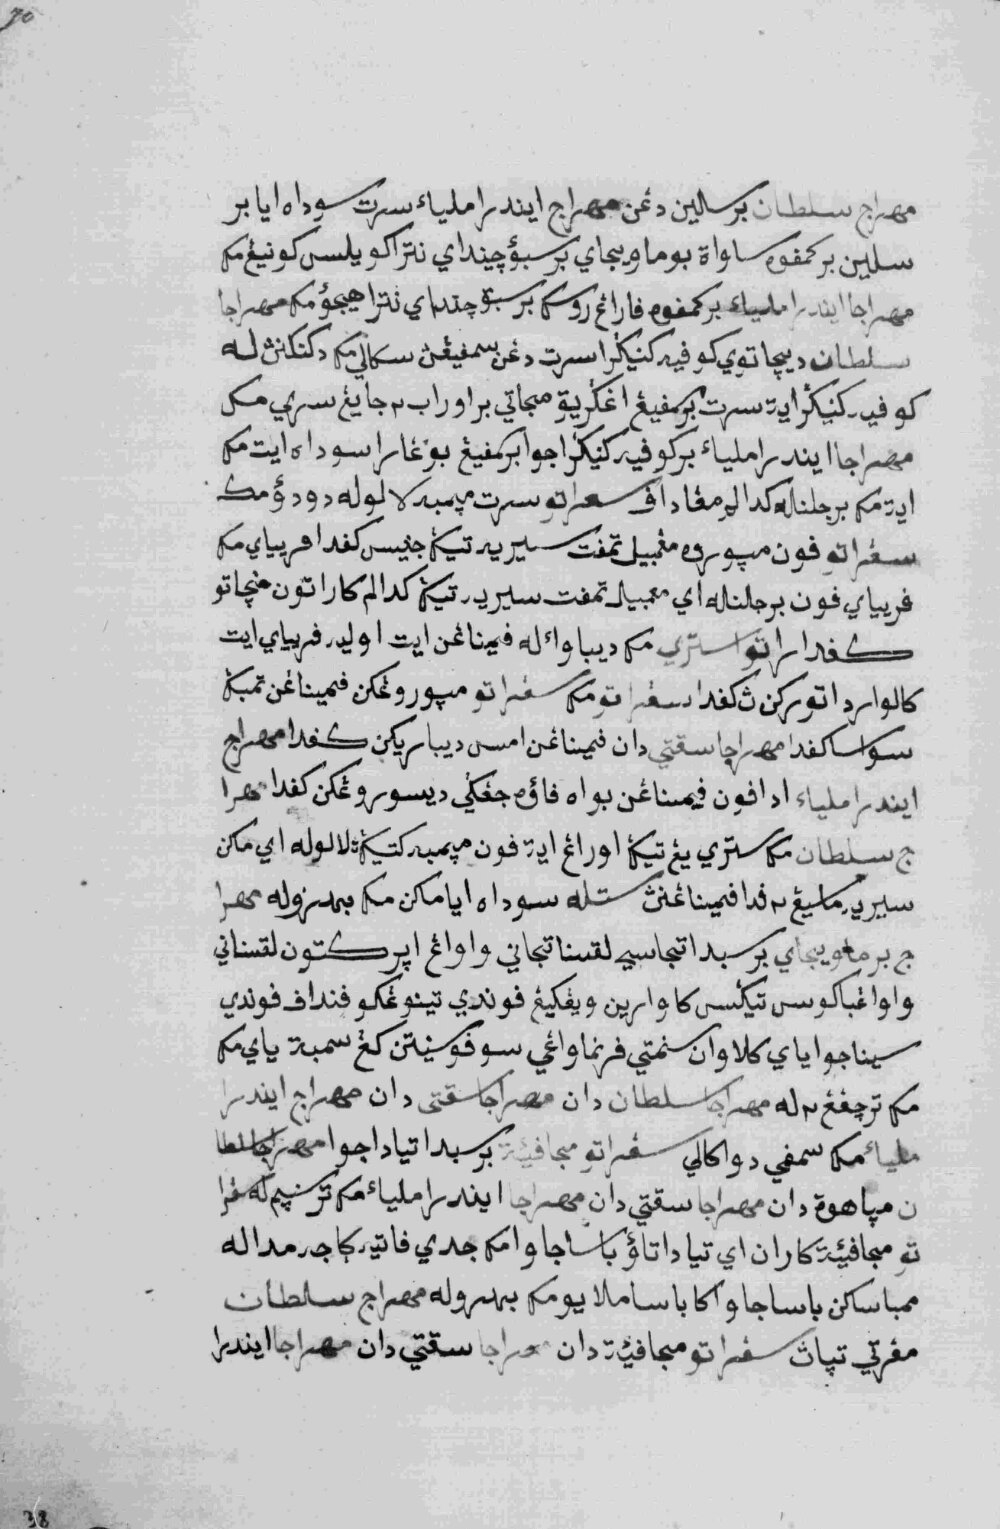 70
مهراج سلطان برسالين دڠن مهراج ايندرا ملياء سرت سوداه ايا بر
سلين بركمفوه ساواة بوما ويجاي برسبوٴ چينداي نتراكو يلسى كونيڠ مك
مهراجا ايندرا ملياء بركمفوه فاراڠ روسى برسبو چنداي نترا هيجوٴ مك مهراجا
سلطان دبچاتوي كوفيه كنيكرا سرت دڠن سمفيڠن سكالي مك دكنكنڽ له
كوفيه كنيكرا ايت سرت برسمفيڠ اڠكريق مجاتي براوراب ٢ جايڠ سري مك
مهراجا ايندرا ملياء بركوفيه كنيكرا جوا برسمفيڠ بوڠارا سوداه ايت مك
ايت مك برجلناله كدالم مڠادف سڠراتو سرت مپمبه لالوله دودوٴ مك
سڠراتو فون مپوروه مڠمبيل تمفت سيريه تيڬ جنيس كفد افرياي مك
فرياي فون برجلناله اي مڠمبيل تمفت سيريه تيڬ كدالم كاراتون منچاتو
كفد اراتو استري مك ديباواله فميناڠن ايت اوليه فرياي ايت
كالوار داتوركن ڽ كفد سڠراتو مك سڠراتو مپوروڠكن فميناڠن تمبڬ
سواسا كفد مهراجا سقتي دان فميناڠن امس ديباريكن كفد امهراج
ايندرا ملياء ادافون فميناڠن بواه فاوٴه جڠكي ديسوروڠكن كفد مهرا
ج سلطان مك ستري يڠ تيڬ اوراڠ ايت فون مپمبه كتيڬڽ لالوله اي ماكن
سيريه ماسيڠ ٢ فدا فميناڠنڽ ستله سوداه ايا ماكن مك بهروله مهرا
ج برماويجاي برسبدا تجاسيي لقسنا تجاني واواڠ اپر كتون لقسناني
واواڠباكوس تيكس كاوارين ويڠكيڠ فوندي تينوڠكو فنداف فوندي
سيناجوا ياي كلاوان سنمتي فرنماواڠي سوفوسينتن كڠ سمبة ياي مك
مك ترچڠڠ ٢ له مهراجا سلطان دان مهراجا سقتي دان مهراج ايندرا
ملياء مك سمفي دوا كالي سڠراتو مجافيت برسبدا تيادا جوا مهراجا سلطا
ن مپاهوة دان مهراجا سقتي دان مهراجا ايندرا ملياء مك ترسپمله سڠرا
تو مجافيت كاران اي تيادا تاوٴ باساجاوا مك جدي فاتيه كاجه مداله
ممباسكن باساجاوا كا باسا ملايو مك بهروله مهراج سلطان
مڠرتي تپاڽ سڠراتو مجافيت دان مهراجا سقتي دان مهراجا ايندرا
38